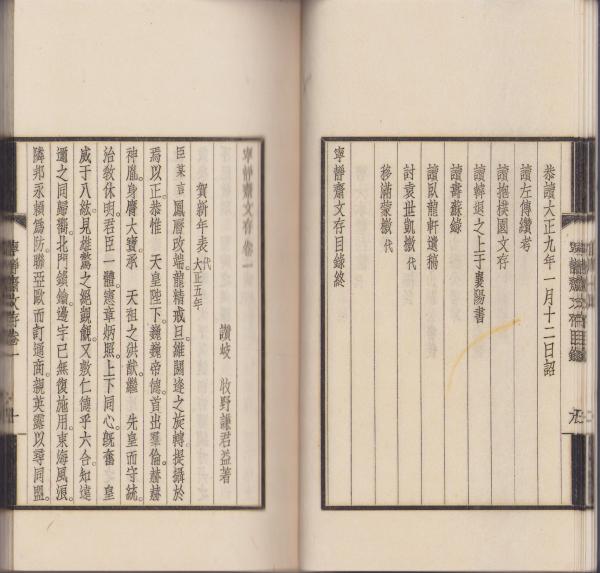 恭讀大正九年一月十二日詔
讀左傳纘考
讀抱樸園文存
讀韓退之上于襄陽書
讀壽蘇錄
讀臥龍軒遺稿
討袁世凱檄代
移滿蒙檄代
寧靜齋文存目錄終
寧靜齋文存卷一
讚岐 牧野謙君益著
賀新年表代大正五年
臣某言鳳曆改端龍精戒旦維閼逢之旋轉提攝於
焉以正恭惟 天皇陛下巍巍帝德首出羣倫赫赫
神胤身膺大寶承 天祖之洪猷繼 先皇而守統
治敎休明君臣一體憲章炳照上下同心旣奮 皇
威于八紘見雄鷙之絕覬覦又敷仁德乎六合知遠
邇之同歸嚮北門鎖鑰邊宇已無復施用東海風浪
隣邦永賴爲防聯亞歐而訂通商親英露以尋同盟
寧靜齋文存卷一